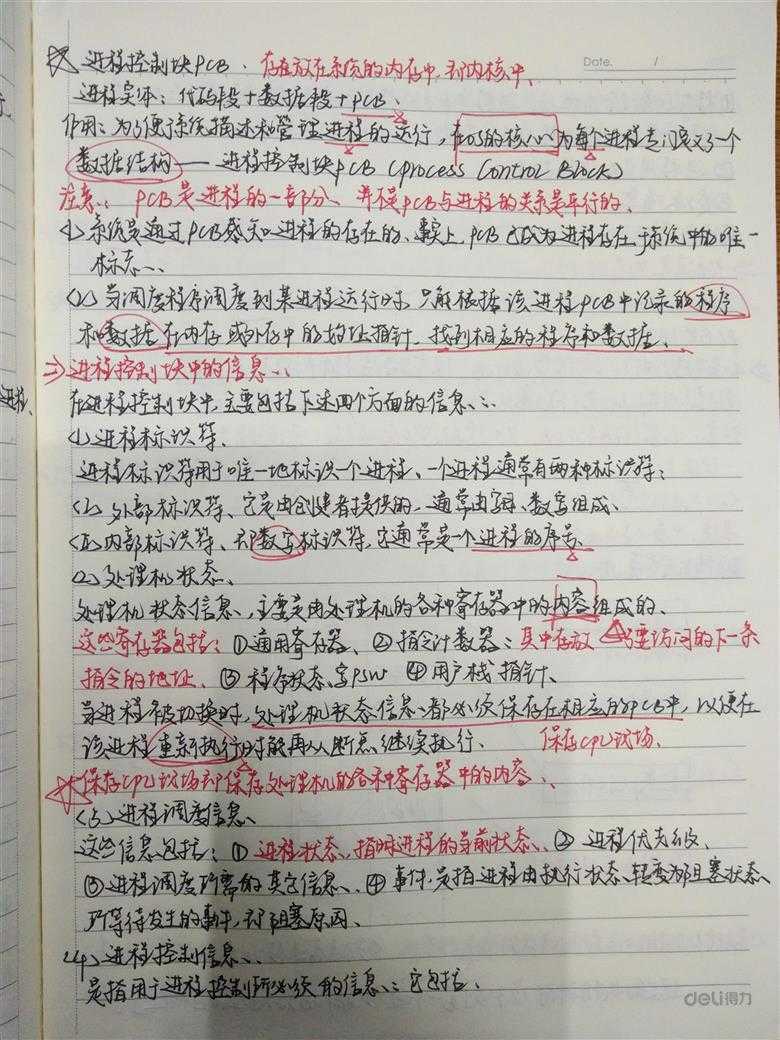 Date. /
进程控制块PCB. 存在放在系统的内存中, 即内核中.
进程实体: 代码段+数据段+PCB.
作用: 为了便于系统描述和管理进程的运行, 在OS的核心为每个进程专门定义了一个
数据结构——进程控制块PCB (Process Control Block)
注意: PCB是进程的一部分、并不是PCB与进程的关系是平行的.
<1> 系统是通过PCB感知进程的存在的、事实上, PCB已成为进程存在于系统中的唯一
标志.
<2> 当调度程序调度到某进程运行时, 只能根据该进程PCB中记录的程序
和数据在内存或外存中的地址指针, 找到相应的程序和数据.
进程控制块中的信息.
在进程控制块中, 主要包括下述四个方面的信息:
进程、
<1> 进程标识符.
进程标识符用于唯一地标识一个进程、一个进程通常有两种标识符:
外部标识符、它是由创建者提供的, 通常由字母、数字组成.
内部标识符、即数字标识符, 它通常是一个进程的序号.
(2) 处理机状态.
处理机状态信息、主要是由处理机的各种寄存器中的内容组成的.
这些寄存器包括: ①通用寄存器、②指令计数器: 其中存放 要访问的下一条
指令的地址、③ 程序状态字PSW ④ 用户栈指针.
当进程被切换时, 处理机状态信息都必须保存在相应的PCB中, 以便在
该进程重新执行时能再从断点继续执行、 保存CPU现场.
保存CPU现场即保存处理机的各种寄存器中的内容.
(3) 进程调度信息.
这些信息包括: ① 进程状态, 指明进程的当前状态、② 进程优先级.
③ 进程调度所需的其它信息、④ 事件, 是指进程由执行状态转变为阻塞状态
所等待发生的事件, 即阻塞原因.
<4> 进程控制信息.
是指用于进程控制所必须的信息: 它包括.
deli得力